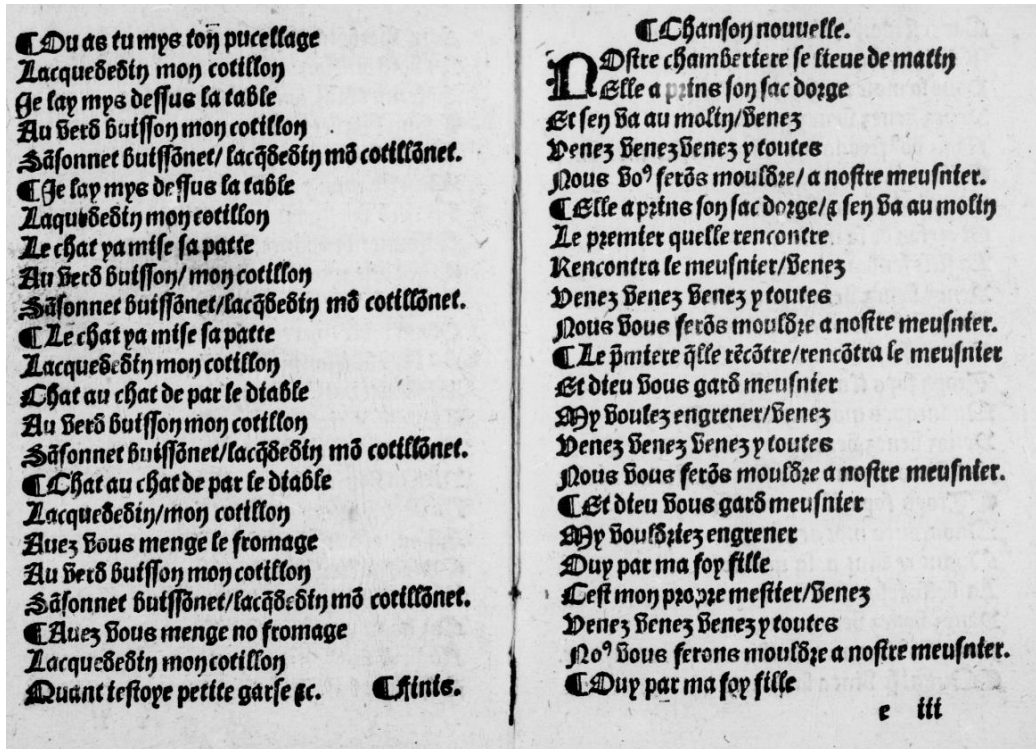 ¶Ou as tu mys ton pucellage
Lacquededin mon cotillon
Je lay mys dessus la table
Au verd buisson mon cotillon
Sãsonnet buissõnet/ lacq̃dedin mõ cotillõnet.
¶Je lay mys dessus la table
Laquededin mon cotillon
Le chat ya mise sa patte
Au verd buisson/ mon cotillon
Sãsonnet buissõnet/lacq̃dedin mõ cotillõnet.
¶Le chat ya mise sa patte
Lacquededin mon cotillon
Chat au chat de par le diable
Au verd buisson mon cotillon
Sãsonnet buissõnet/lacq̃dedin mõ cotillõnet.
¶Chat au chat de par le diable
Lacquededin/mon cotillon
Avez vous menge le fromage
Au verd buisson mon cotillon
Sãsonnet buissõnet/lacq̃dedin mõ cotillõnet.
¶Avez vous menge no fromage
Lacquededin mon cotillon
Quant iestoye petite garse ⁊c. ¶finis.
¶Chanson nouvelle.
NOstre chamberiere se lieue de matin
Elle a prins son sac dorge
Et sen va au molin/venez
Venez venez venez y toutes
Nous voꝰ ferõs mouldre/ a nostre meusnier.
¶Elle a prins son sac dorge/⁊ sen va au molin
Le premier quelle rencontre
Rencontra le meusnier/venez
Venez venez venez y toutes
Nous vous ferõs mouldre a nostre meusnier.
¶Le p̃miere q̃lle rẽcõtre/rencõtra le meusnier
Et dieu vous gard meusnier
My voulez engrener/venez
Venez venez venez y toutes
Nous vous ferõs mouldre a nostre meusnier.
¶Et dieu vous gard meusnier
My vouldriez engrener
Ouy par ma foy fille
Cest mon propre mestier/venez
Venez venez venez y toutes
Noꝰ vous ferons mouldre a nostre meusnier.
¶Ouy par ma foy fille
e iii